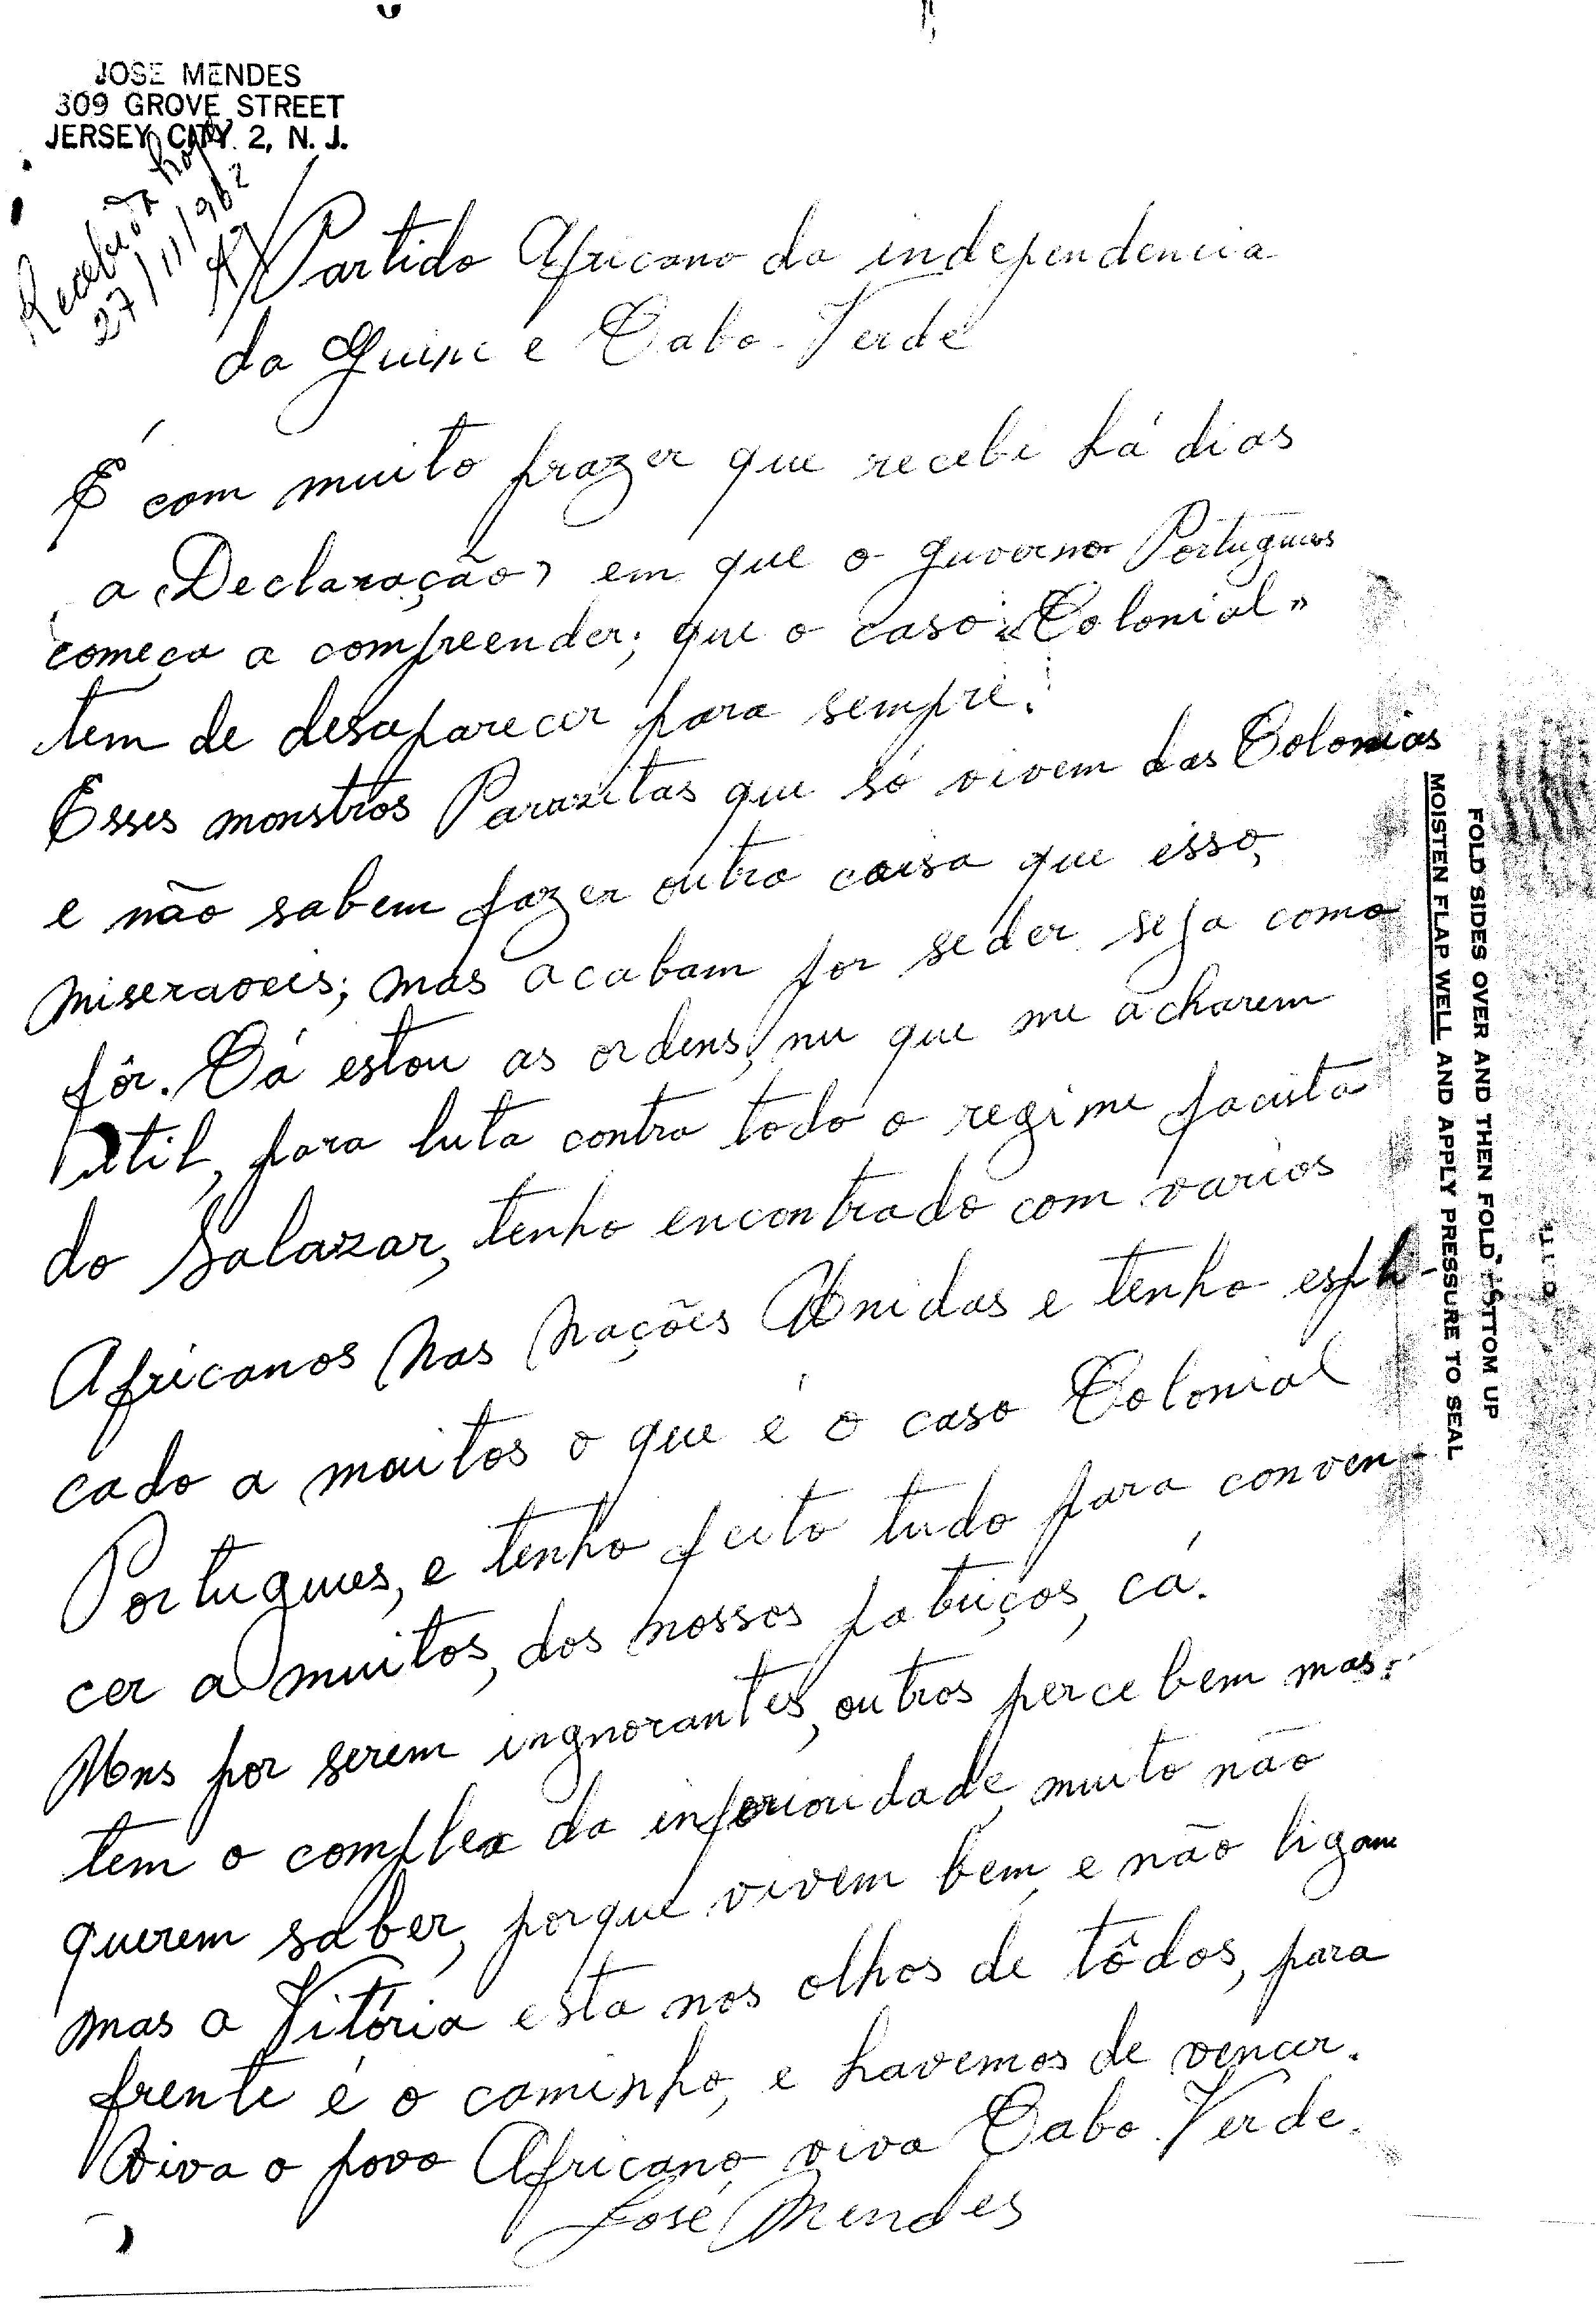 JOSE MENDES
309 GROVE STREET
JERSEY CITY 2, N. J.
Recebida hoje
27/11/962
Partido Africano da independencia
da Guine e Cabo-Verde
É com muito prazer que recebi há dias
a Declaração, em que o guverno Portugues
começa a compreender; que o caso «Colonial»
tem de desaparecer para sempre.
Esses monstros Parazitas que só vivem das Colonias
e não sabem fazer outra coisa que esso,
miseraveis; mas acabam por seder seja como
fôr. Cá estou as ordens, nu que me acharem
util, para luta contra todo o regime facista
do Salazar, tenho encontrado com varios
Africanos nas Nações Unidas e tenho espli-
cado a muitos o que é o caso Colonial
Portugues, e tenho feito tudo para conven-
cer a muitos, dos nossos patriços, cá.
Uns por serem ingnorantes, outros percebem mas
tem o complex da inferioridade, muito não
querem saber, porque vivem bem, e não ligam
mas a Vitória esta nos olhos de tôdos, para
frente é o caminho, e havemos de vencer.
Viva o povo Africano, viva Cabo Verde.
José Mendes
FOLD SIDES OVER AND THEN FOLD BOTTOM UP
MOISTEN FLAP WELL AND APPLY PRESSURE TO SEAL